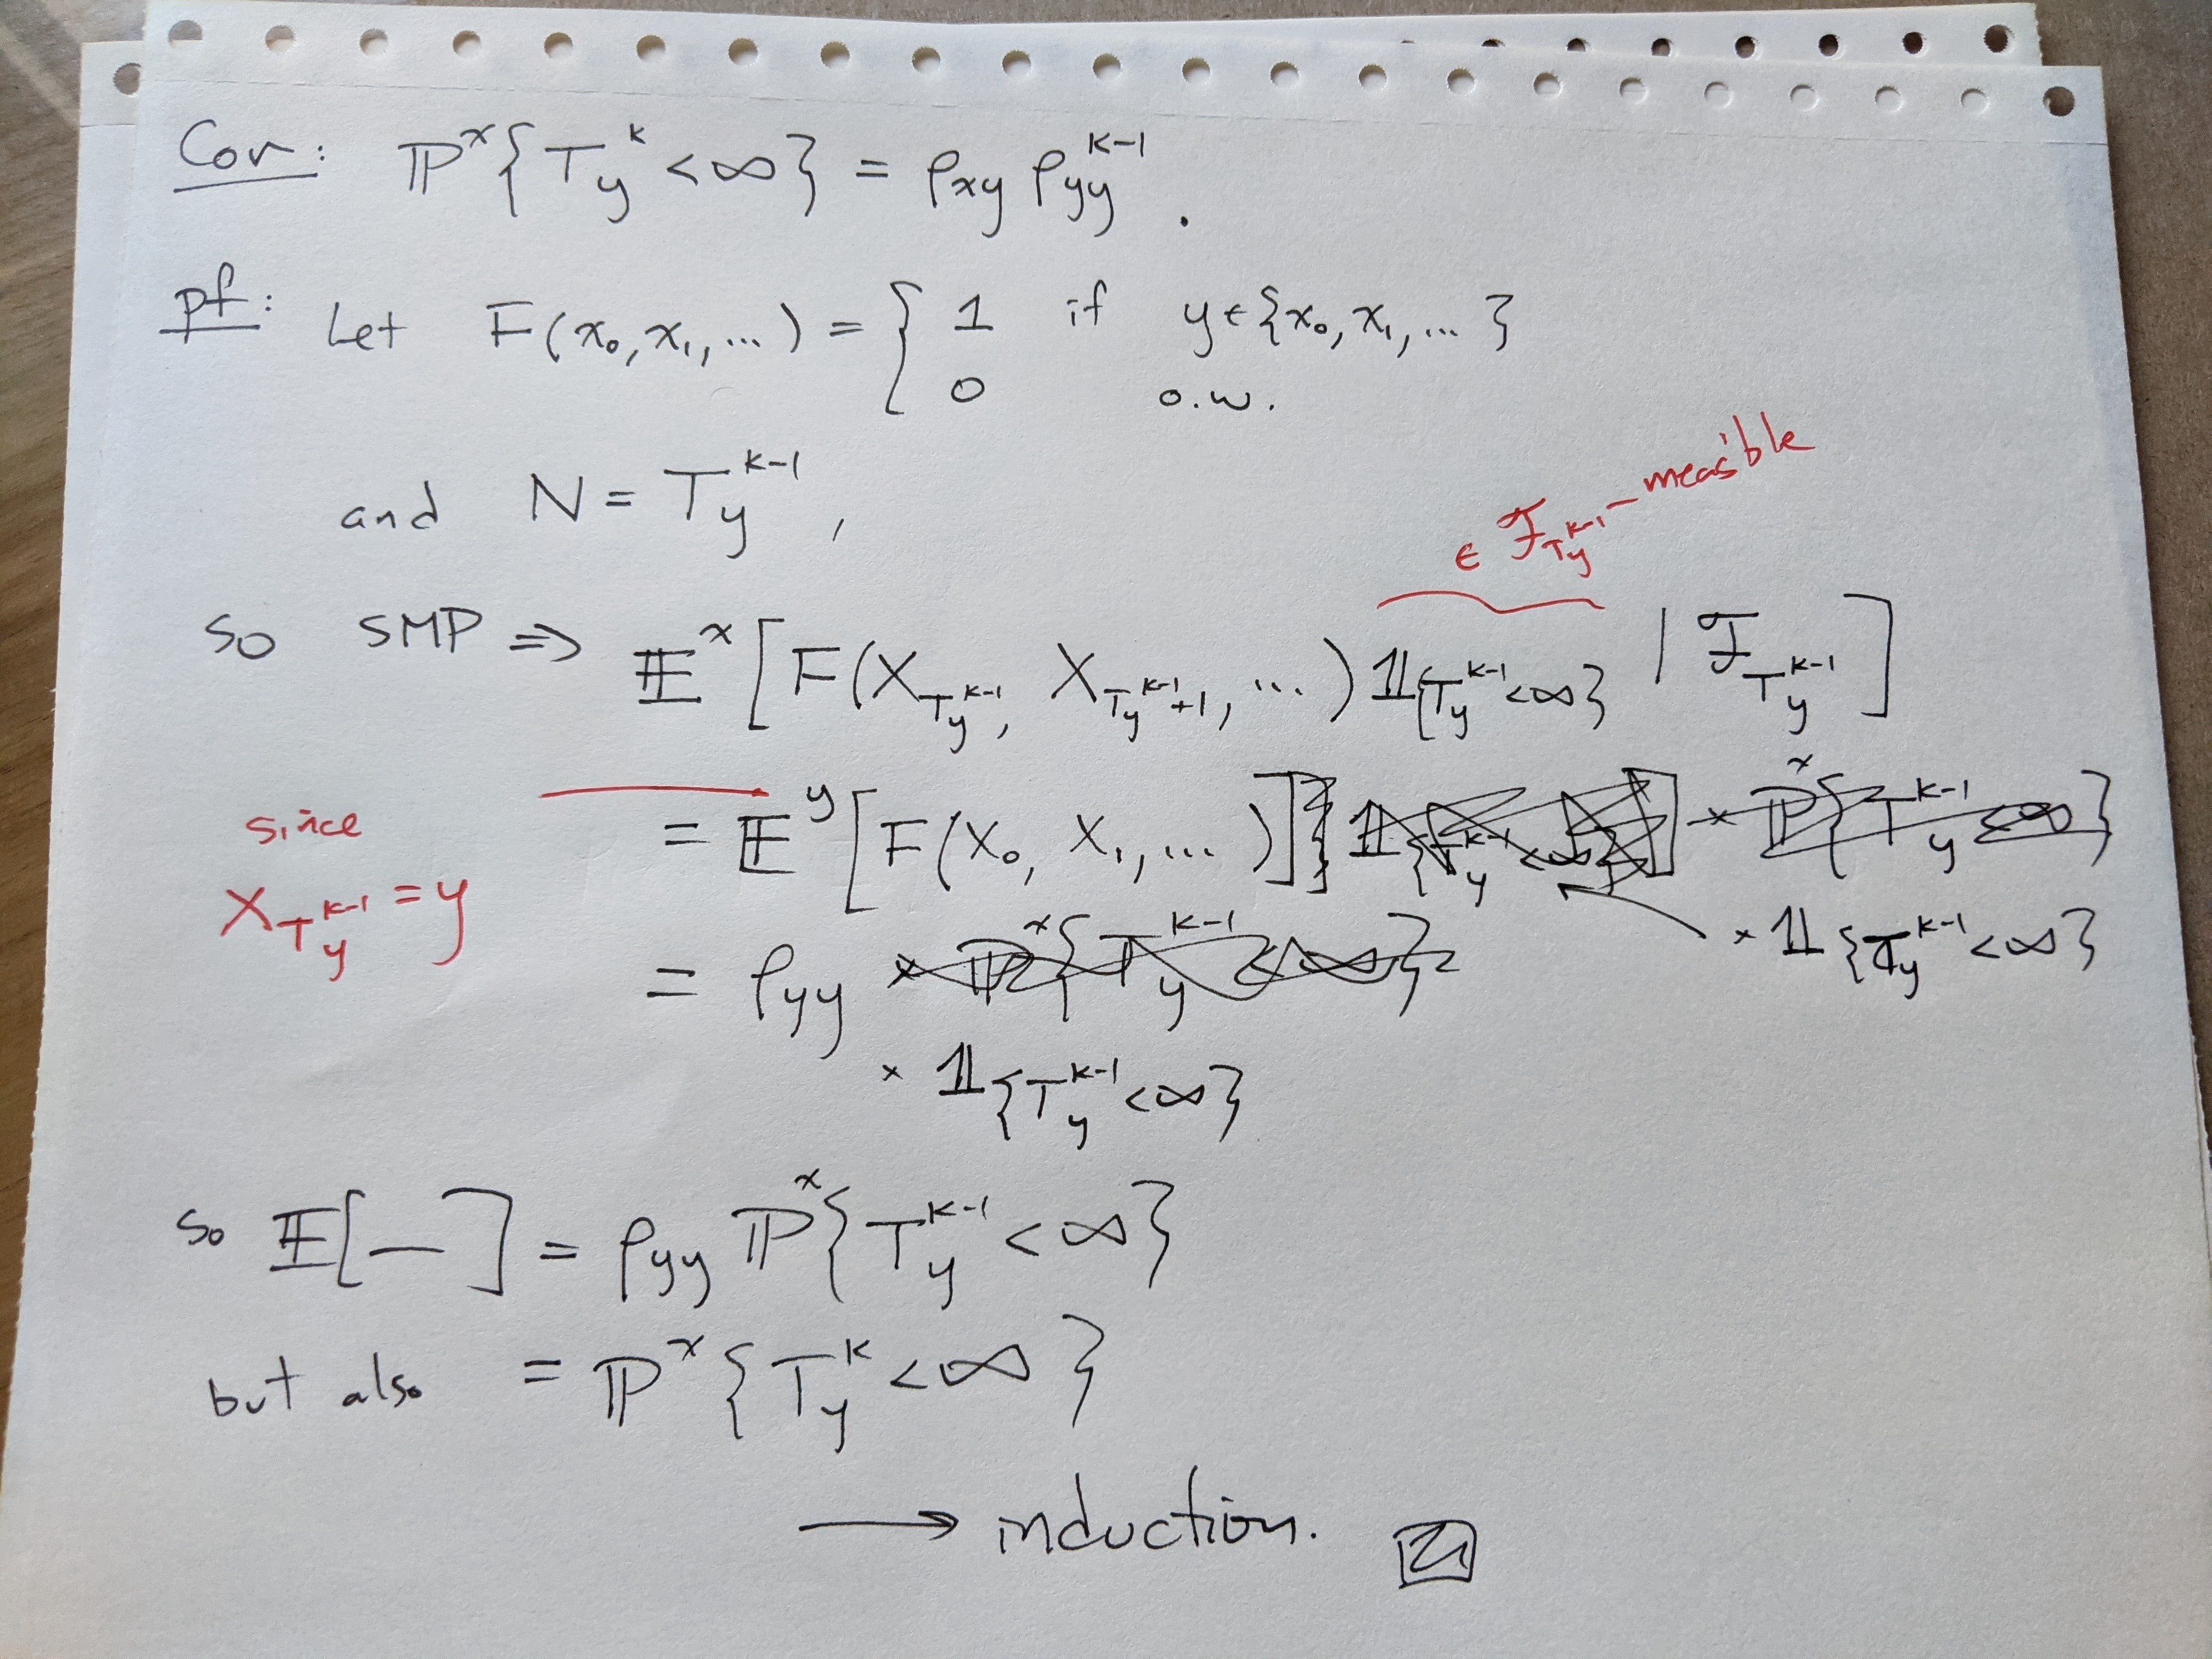 Cor: ℙ^x{T_y^k < ∞} = ρ_xy ρ_yy^{k-1}.
pf: Let F(x_0, x_1, ...) = { 1 if y ∈ {x_0, x_1, ...}
0 o.w.
and N = T_y^{k-1},
∈ ℱ_{T_y^{k-1}} - measible
so SMP ⇒ 𝔼^x[F(X_{T_y^{k-1}}, X_{T_y^{k-1}+1}, ...) 𝟙_{{T_y^{k-1} < ∞}} | ℱ_{T_y^{k-1}}]
since
X_{T_y^{k-1}} = y
= 𝔼^y[F(X_0, X_1, ...)]
× 𝟙_{{T_y^{k-1} < ∞}}
= ρ_yy
× 𝟙_{{T_y^{k-1} < ∞}}
so 𝔼[—] = ρ_yy ℙ^x{T_y^{k-1} < ∞}
but also = ℙ^x{T_y^k < ∞}
→ induction.